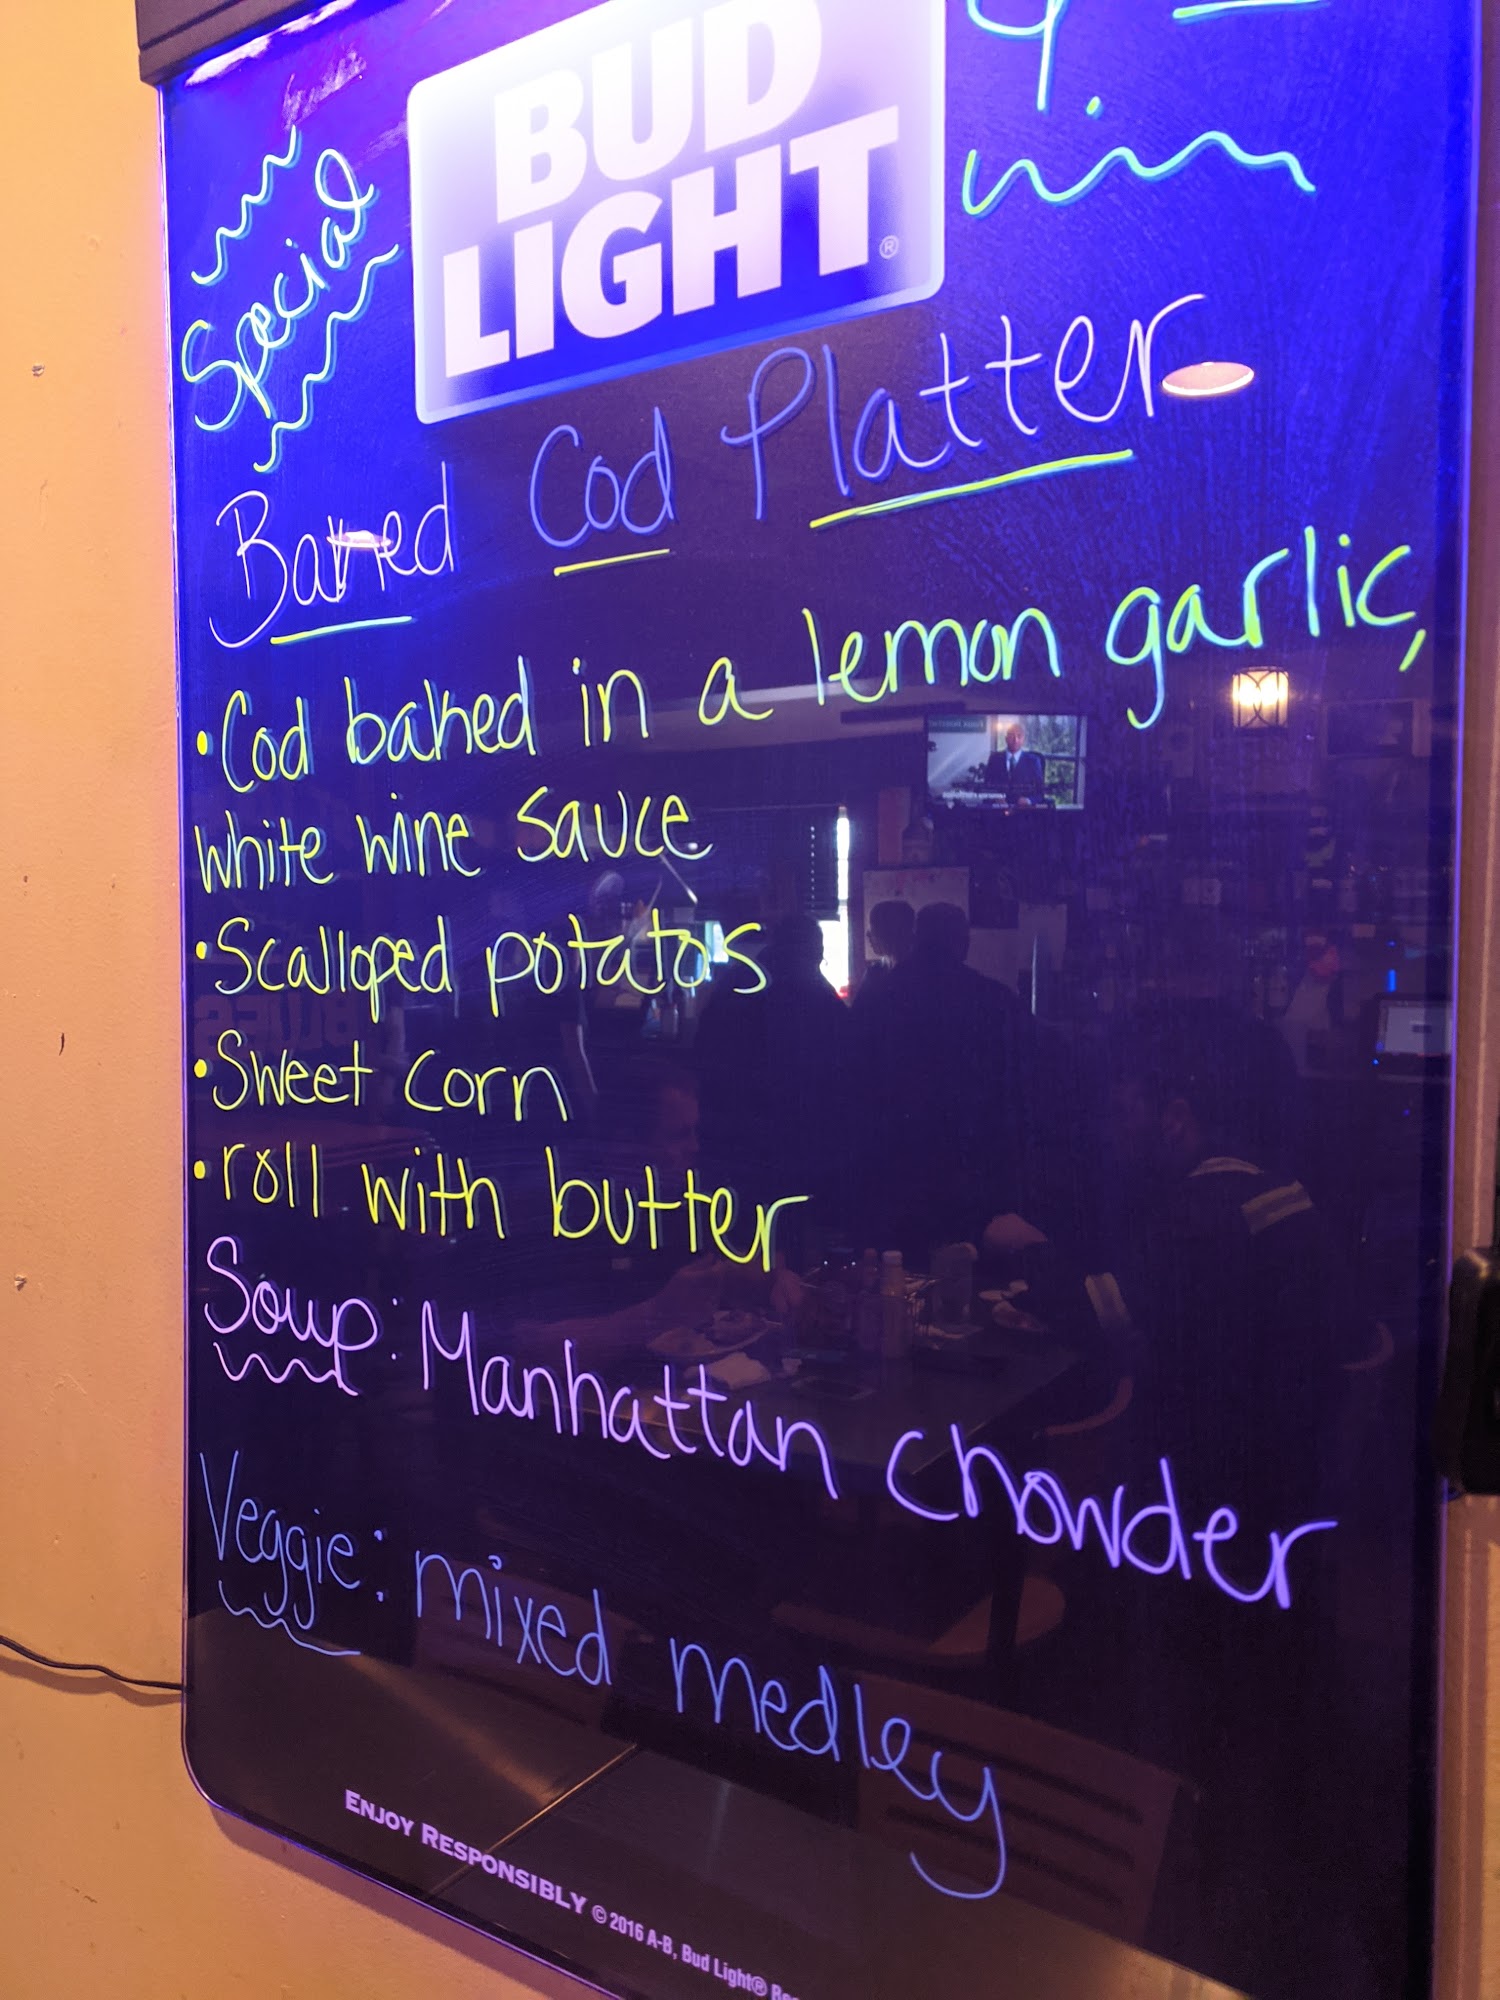 BUD
LIGHT®
Special
Baked Cod Platter
• Cod baked in a lemon garlic,
white wine sauce
• Scalloped potatos
• Sweet corn
• roll with butter
Soup: Manhattan chowder
Veggie: mixed medley
ENJOY RESPONSIBLY © 2016 A-B, Bud Light®